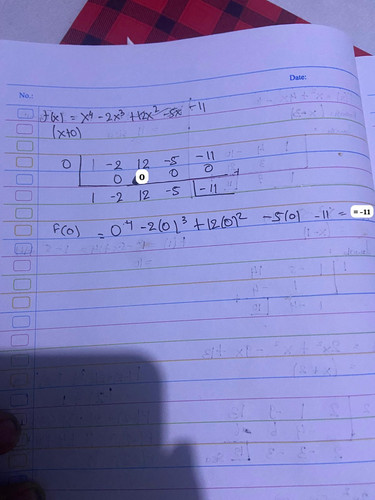 No.:
Date:
f(x) = x⁴ - 2x³ + 12x² - 5x - 11
(x+0)
0 | 1 -2 12 -5 -11
0 0 0 0 +
1 -2 12 -5 | -11
F(0) = 0⁴ - 2(0)³ + 12(0)² - 5(0) - 11 = = -11